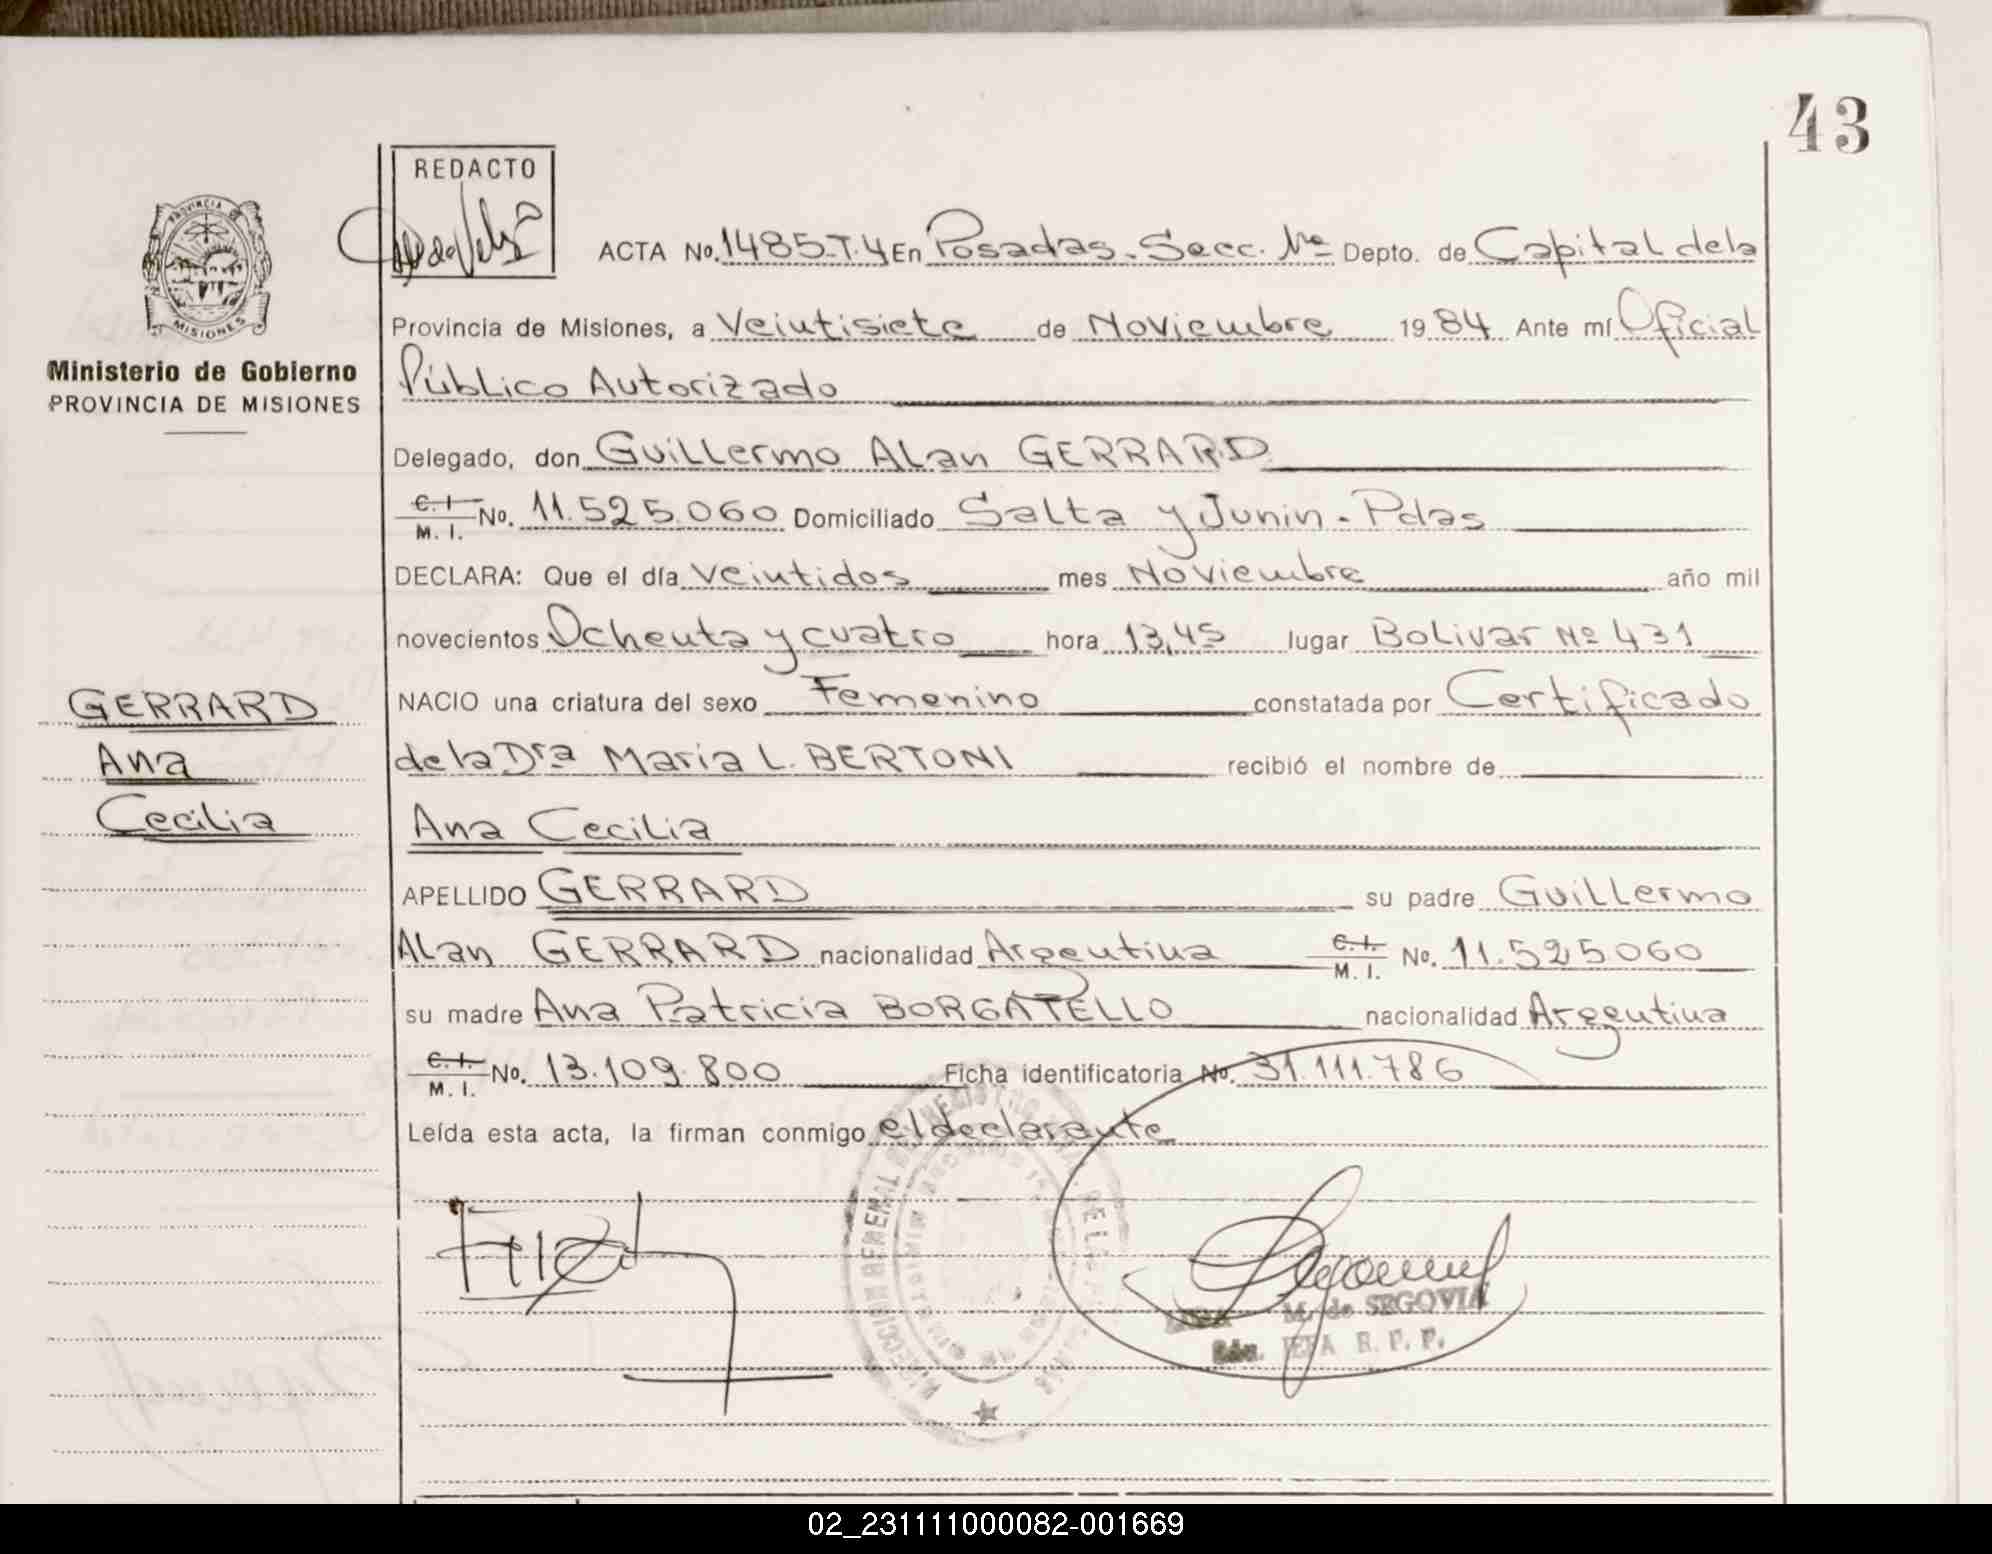 43
REDACTO
PROVINCIA DE
MISIONES
Ministerio de Gobierno
PROVINCIA DE MISIONES
ACTA No. 1485-T.4 En Posadas. Secc. Depto. de Capital de la
Provincia de Misiones, a Veintisiete de Noviembre 1984 Ante mí Oficial
Público Autorizado
Delegado, don Guillermo Alan GERRARD
C. I. / M. I. No. 11.525.060 Domiciliado Salta y Junin - Pdas
DECLARA: Que el día veintidos mes Noviembre año mil
novecientos Ochenta y cuatro hora 13,45 lugar Bolivar Nº 431
NACIO una criatura del sexo Femenino constatada por Certificado
de la Dra Maria L. BERTONI recibió el nombre de
Ana Cecilia
APELLIDO GERRARD su padre Guillermo
Alan GERRARD nacionalidad Argentina C. I. / M. I. No. 11.525.060
su madre Ana Patricia BORGATELLO nacionalidad Argentina
C. I. / M. I. No. 13.109.800 Ficha identificatoria No. 31.111.786
Leída esta acta, la firman conmigo el declarante
GERRARD
Ana
Cecilia
M. de SEGOVIA
JEFA R. P. P.
02_231111000082-001669